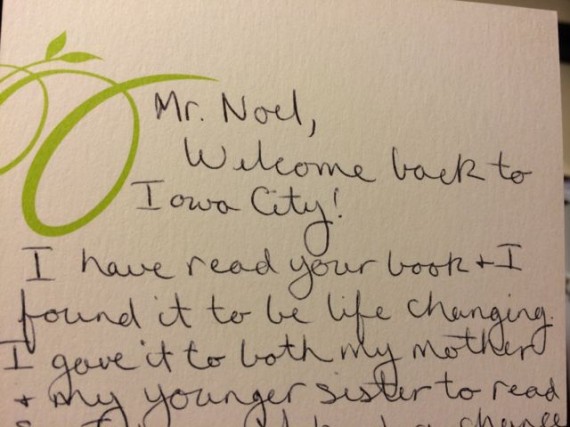 Mr. Noel,
Welcome back to
Iowa City!
I have read your book + I
found it to be life changing.
I gave it to both my mother
+ my younger sister to read
a chance